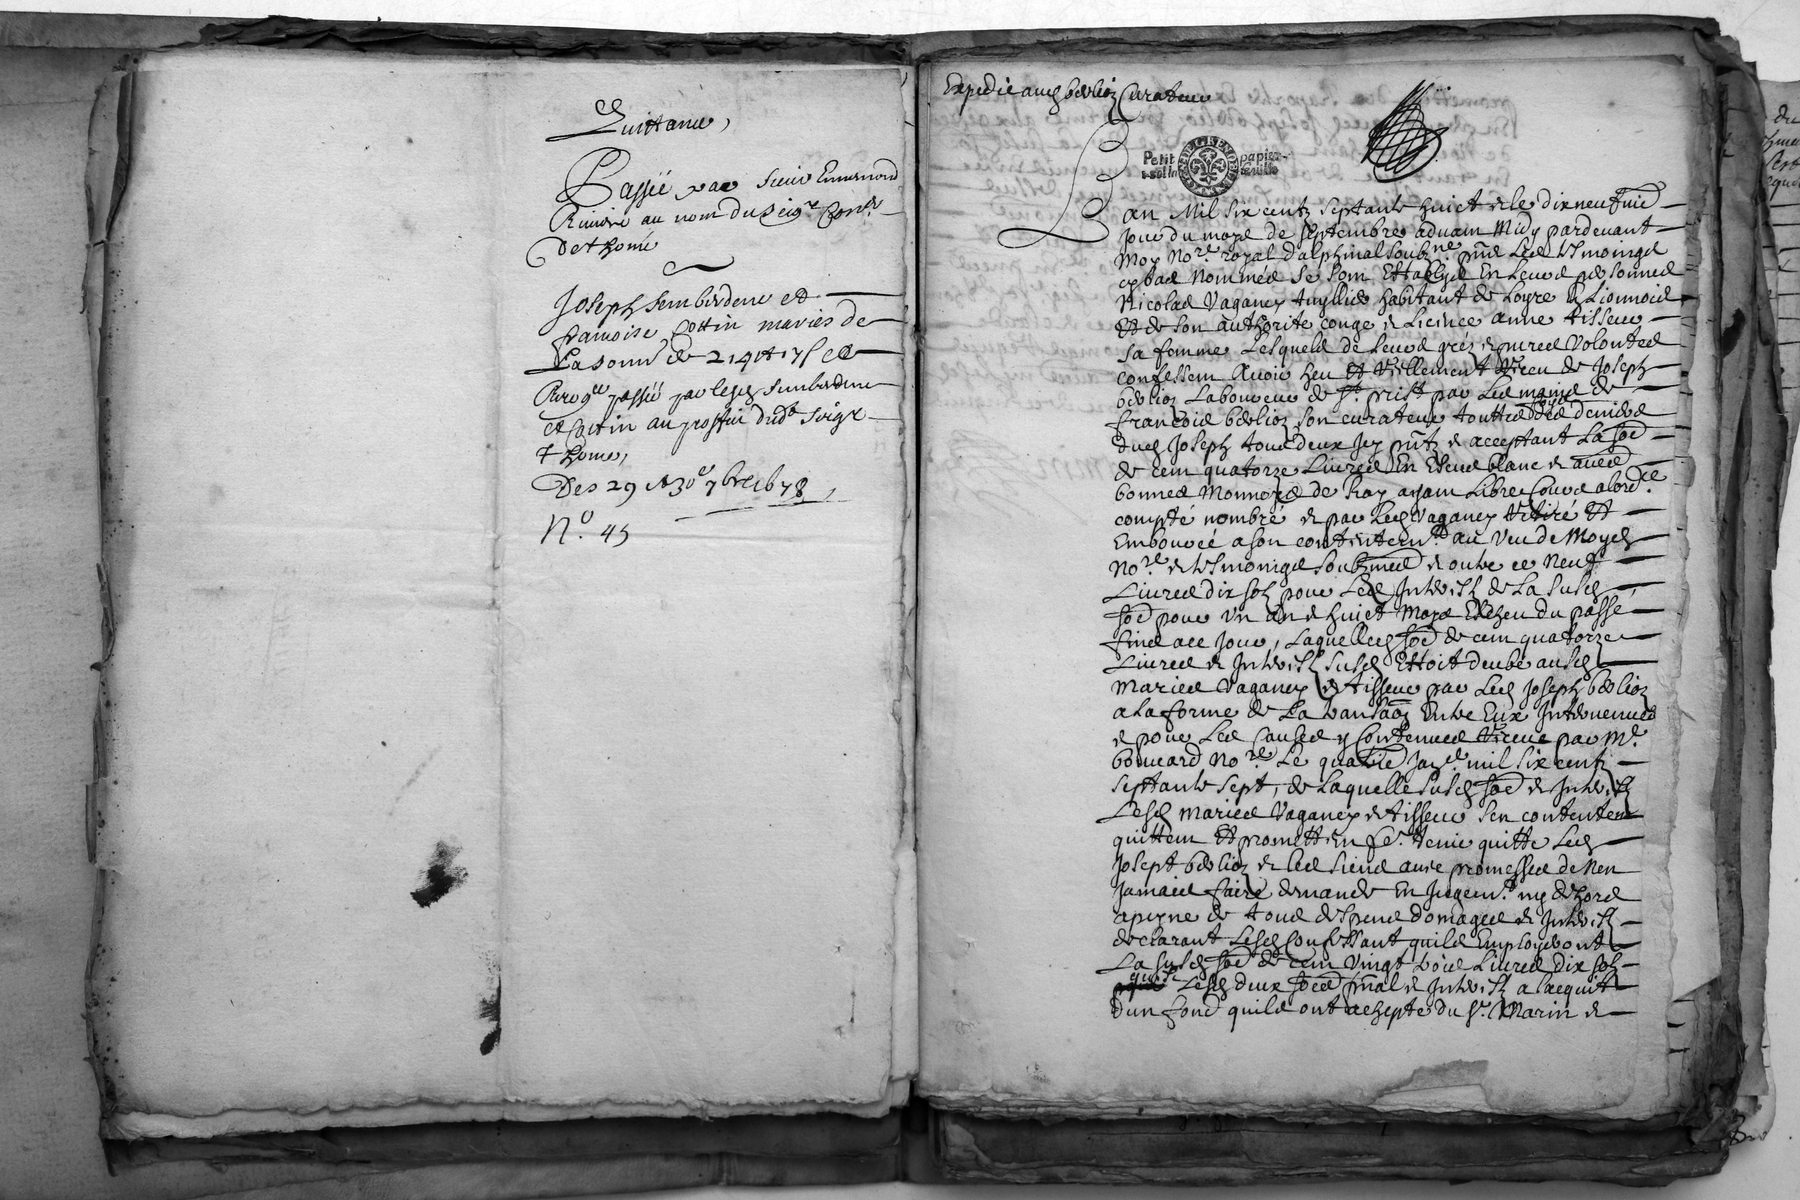 Quittance,
Passéé par Sieur Ennemond
Riviére au nom du Seigr Coner
De thomé
Joseph semberdene et
francoise Cottin mariés de
La somme de 214 lt 17 s et
passéé par lesd semberdene
et Cottin au proffit dud Seigr
thome,
Des 29 et 30e 7bre 1678,
No. 45
Expedie aud berlioz Curateur
Petit papier
GRENOBLE
Lan Mil six centz septante huict et le dixneufvie
Jour du moys de septembre advant Midy pardevant
Moy Nore royal dalphinal soubzne pnt Les tesmoings
cy bas Nommes se sont Estably En Leurs personnes
Nicolas Vaganey tuyllier habitant de Loyre En Lionnois
Et de son authorite conge et Licence anne tisseur
sa femme Lesquels de Leurs gres et pures Volontes
confessent Avoir heu et reellement receu de Joseph
berlioz Laboureur de St prist par Les mains de
francois berlioz son curateur touttes fois des deniers
dud Joseph tous deux Icy pntz et acceptant La soe
de cent quatorze Livres En Escus blanc et aues
bonnes Monnoye de Roy ayant Libre Cours a lordce
compté nombré et par Led Vaganey retiré et
Embourcé a son contentemt au Veu de Moyd
Nore et tesmoings soubznes et outre ce Neuf
Livres dix solz pour Les Interestz de La susd
soe pour Un an et huict Moys Escheu du passé
fines a ce Jour, Laquelle soe de cent quatorze
Livres et Interestz susd Estoit deube ausd
Maries Vaganey et tisseur par Led Joseph berlioz
a la forme de La transaon Entre Eux Intervenue
et pour Les Causes y Contenues receue par Me
bouuard Nore Le quatrie Janer mil six centz
septante sept, de Laquelle susd soe et Interestz
Lesd maries Vaganey et tisseur sen contentent
quittent Et promettent fe tenir quitte Led
Josept berlioz et les siens avec promesses de Nen
Jamais faire demande En Jugemt ny dehors
a peyne de tous despens domages et Interestz
declarant Lesd Confessant quils Employeront
La susd soe de cent Vingt trois Livres dix solz
Lesd deux soes pnal et Interestz a lacquit
dun fond quils ont achepté du Sr Marin et